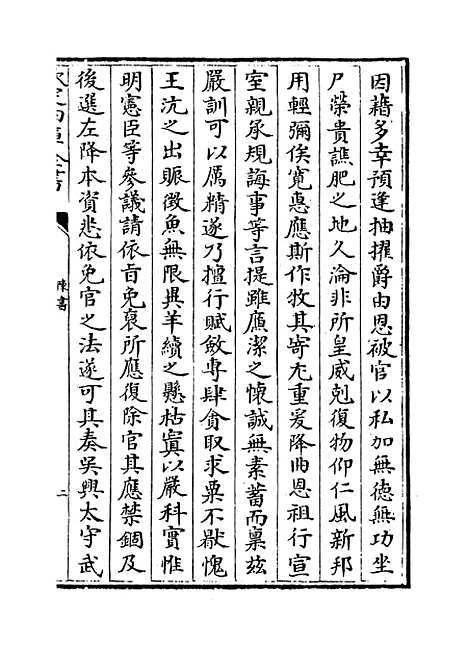 因藉多幸預逢抽擢爵由恩被官以私加無德無功坐
尸榮貴譙肥之地久淪非所皇威剋復物仰仁風新邦
用輕彌俟寛惠應斯作牧其寄尤重爰降曲恩祖行宣
室親承規誨事等言提雖廉潔之懷誠無素蓄而稟兹
嚴訓可以厲精遂乃擅行賦斂專肆貪取求粟不猒愧
王沆之出賑徵魚無限異羊續之懸枯寘以嚴科實惟
明憲臣等參議請依㫖免裒所應復除官其應禁錮及
後選左降本資悉依免官之法遂可其奏吳興太守武
欽定四庫全書
陳書
二